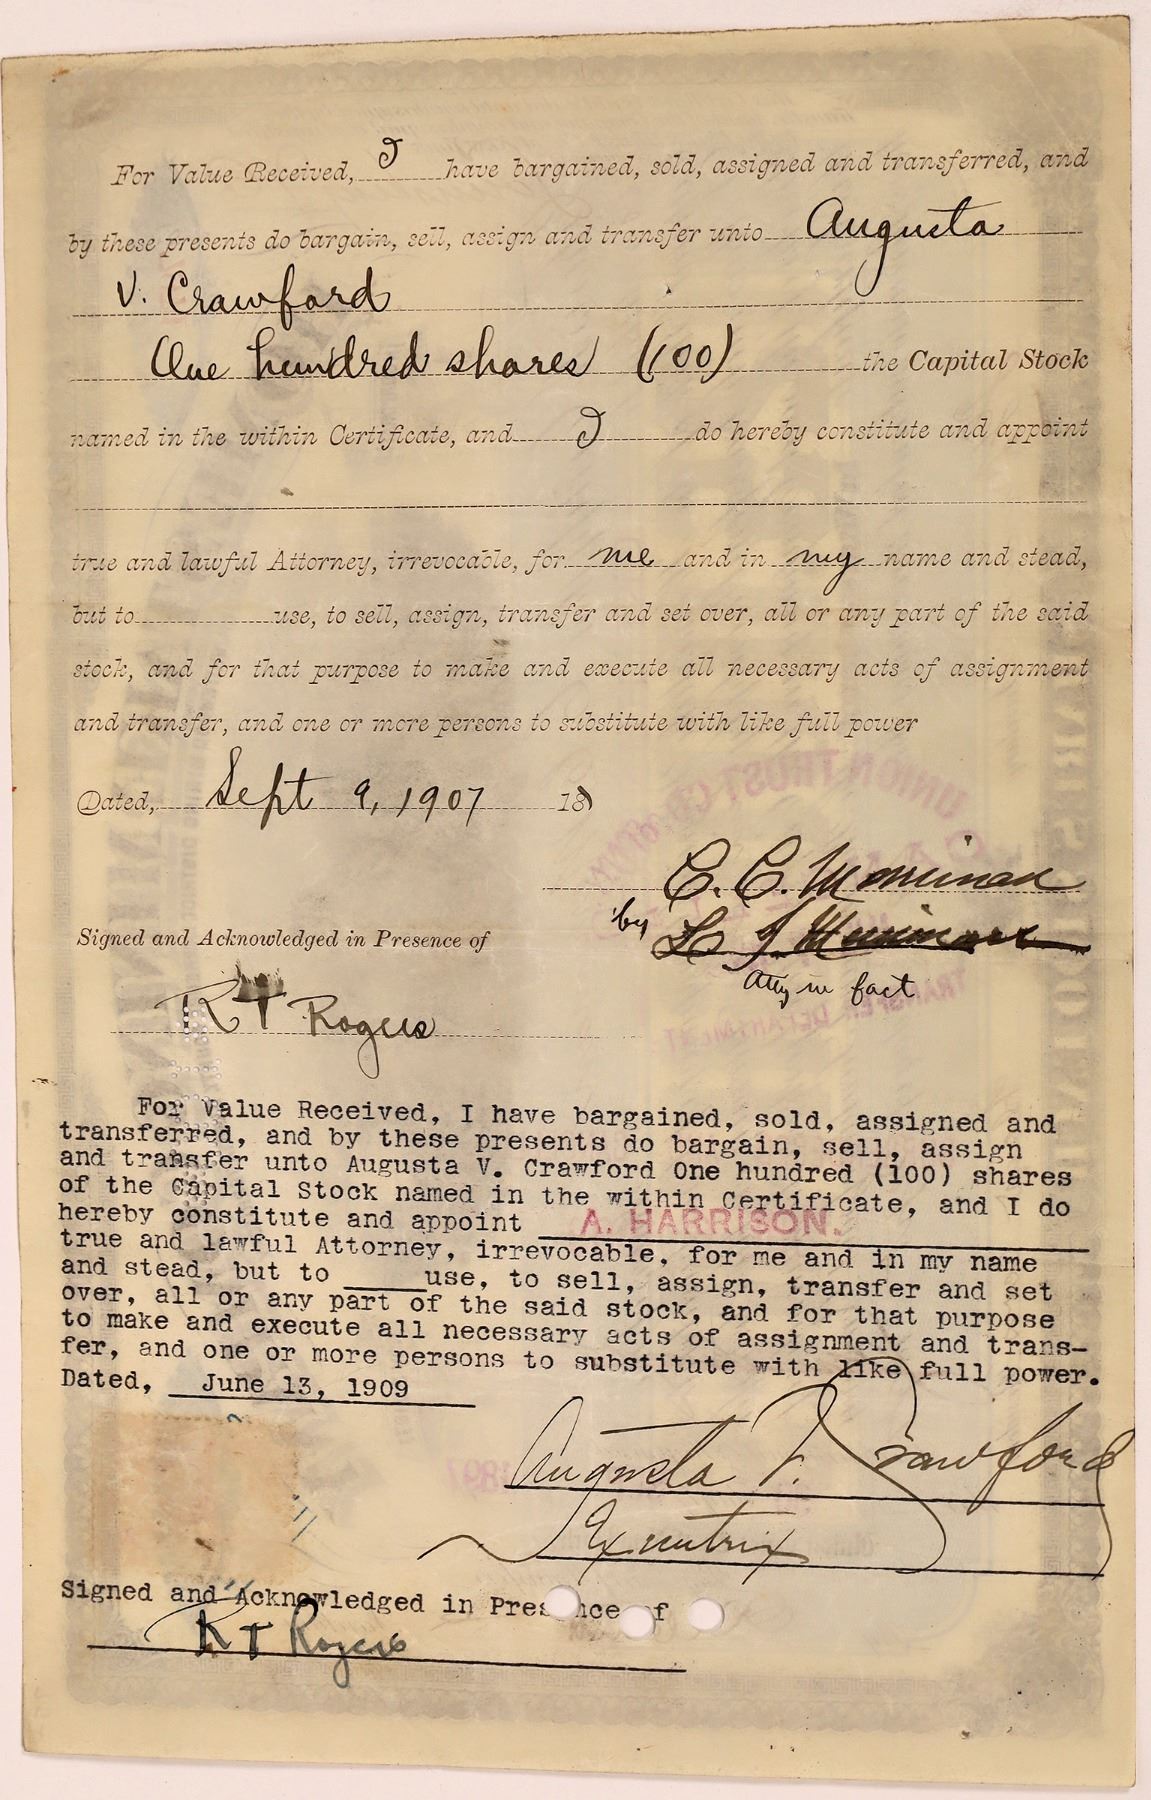 For Value Received, I have bargained, sold, assigned and transferred, and
by these presents do bargain, sell, assign and transfer unto Augusta
V. Crawford
One hundred shares (100) the Capital Stock
named in the within Certificate, and I do hereby constitute and appoint
true and lawful Attorney, irrevocable, for me and in my name and stead,
but to use, to sell, assign, transfer and set over, all or any part of the said
stock, and for that purpose to make and execute all necessary acts of assignment
and transfer, and one or more persons to substitute with like full power
Dated, Sept 9, 1907 18
E. C. Merriman
by L. J. Merriman
Atty in fact
Signed and Acknowledged in Presence of
R T Rogers
For Value Received, I have bargained, sold, assigned and
transferred, and by these presents do bargain, sell, assign
and transfer unto Augusta V. Crawford One hundred (100) shares
of the Capital Stock named in the within Certificate, and I do
hereby constitute and appoint A. HARRISON.
true and lawful Attorney, irrevocable, for me and in my name
and stead, but to ____ use, to sell, assign, transfer and set
over, all or any part of the said stock, and for that purpose
to make and execute all necessary acts of assignment and trans-
fer, and one or more persons to substitute with like full power.
Dated, June 13, 1909
Augusta V. Crawford
Executrix
Signed and Acknowledged in Presence of
R T Rogers